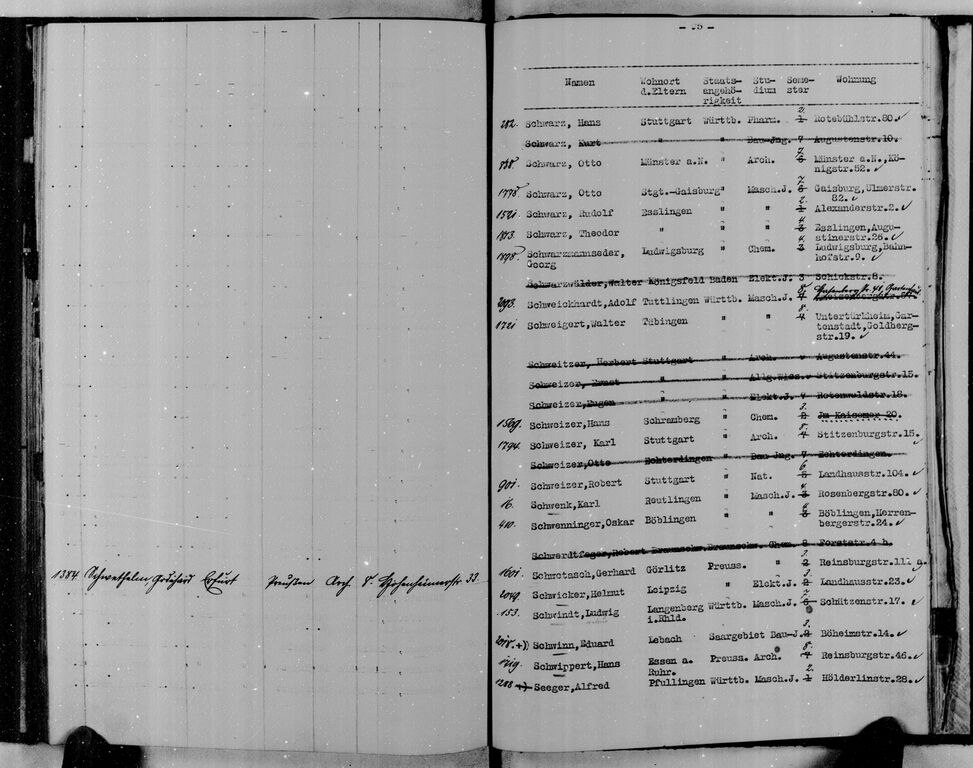 1384 Schwethelm Erfurt Preußen Arch 8. Hohenheimerstr 33
Namen Wohnort Staats- Stu- Seme- Wohnung
d.Eltern angehö- dium ster
rigkeit
2.
282. Schwarz, Hans Stuttgart Württb. Pharm. 1 Rotebühlstr.80.✓
Schwarz, Kurt " " Bau-Jng. 7 Augustenstr.10.
7.
Schwarz, Otto Münster a.N. " Arch. 6 Münster a.N.,Kö-
nigstr.52.✓
7.
1778. Schwarz, Otto Stgt.-Gaisburg" Masch.J. 6 Gaisburg,Ulmerstr.
82.✓
2.
1521. Schwarz, Rudolf Esslingen " " 1 Alexanderstr.2.✓
4.
1873. Schwarz, Theodor " " " 3 Esslingen,Augu-
stinerstr.26.✓
4.
1898. Schwarzmannseder, Ludwigsburg " Chem. 3 Ludwigsburg,Bahn-
Georg hofstr.9.✓
Schwarzwälder,Walter Königsfeld Baden Elekt.J. 3 Schickstr.8.
8.
2093. Schweickhardt,Adolf Tuttlingen Württb. Masch.J. 4
8.
1721 Schweigert,Walter Tübingen " " 4 Untertürkheim,Gar-
tenstadt,Goldberg-
str.19.✓
Schweitzer, Herbert Stuttgart " Arch. Augustenstr.44.
Schweizer, Ernst " " Allg.Wiss. Stitzenburgstr.15.
Schweizer,Eugen " " Elekt.J. 4 Rotenwaldstr.18.
3.
1569. Schweizer,Hans Schramberg " Chem. 2 Jm Kaisemer 20.
8.
1794. Schweizer, Karl Stuttgart " Arch. 4 Stitzenburgstr.15.✓
Schweizer,Otto Echterdingen " Bau-Jng. 7 Echterdingen.
6
901. Schweizer,Robert Stuttgart " Nat. 5 Landhausstr.104.✓
4.
16. Schwenk,Karl Reutlingen " Masch.J. 3 Rosenbergstr.80.✓
410. Schwenninger,Oskar Böblingen " " 3 Böblingen,Herren-
bergerstr.24.✓
Schwerdtfeger,Robert Braunschw. Braunschw. Chem. 8 Forststr.4 h.
3.
1601. Schwotasch,Gerhard Görlitz Preuss. " 2 Reinsburgstr.111 a.
3.
2049. Schwicker,Helmut Leipzig " Elekt.J. 2 Landhausstr.23.✓
7
153. Schwindt,Ludwig Langenberg Württb. Masch.J. 6 Schützenstr.17.✓
i.Rhld.
3.
+) Schwinn,Eduard Lebach Saargebiet Bau-J. 2 Böheimstr.14.✓
8.
Schwippert,Hans Essen a. Preuss. Arch. 4 Reinsburgstr.46.✓
Ruhr.
2.
1208 +) Seeger,Alfred Pfullingen Württb. Masch.J. 1 Hölderlinstr.28.✓